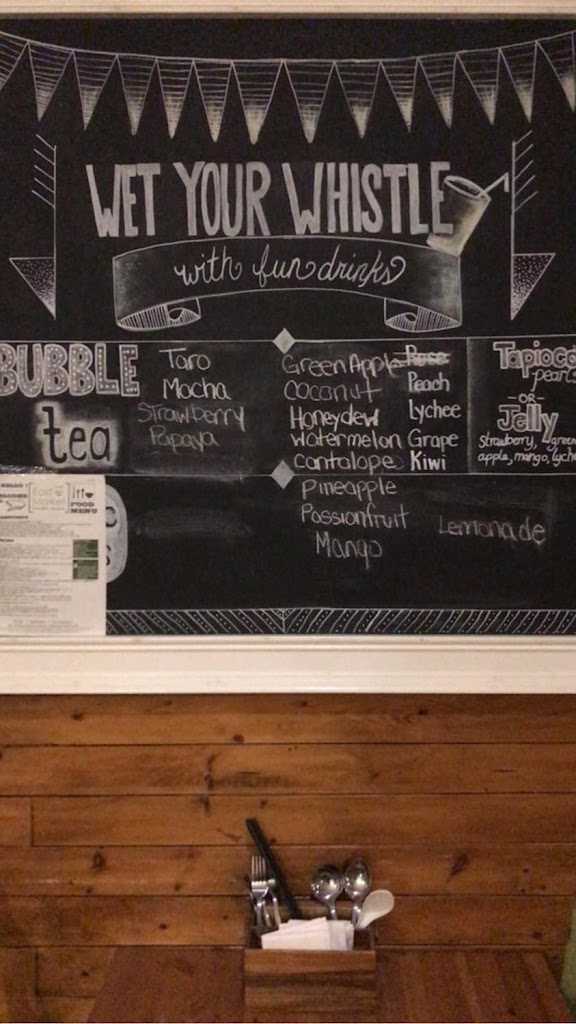 WET YOUR WHISTLE
with fun drinks
BUBBLE
tea
Taro
Mocha
Strawberry
Papaya
Green Apple
Coconut
Honeydew
Watermelon
Cantalope
Pineapple
Passionfruit
Mango
Rose
Peach
Lychee
Grape
Kiwi
Lemonade
Tapioca
pearls
-OR-
Jelly
strawberry, green
apple, mango, lyche
East
Market
FOOD
MENU